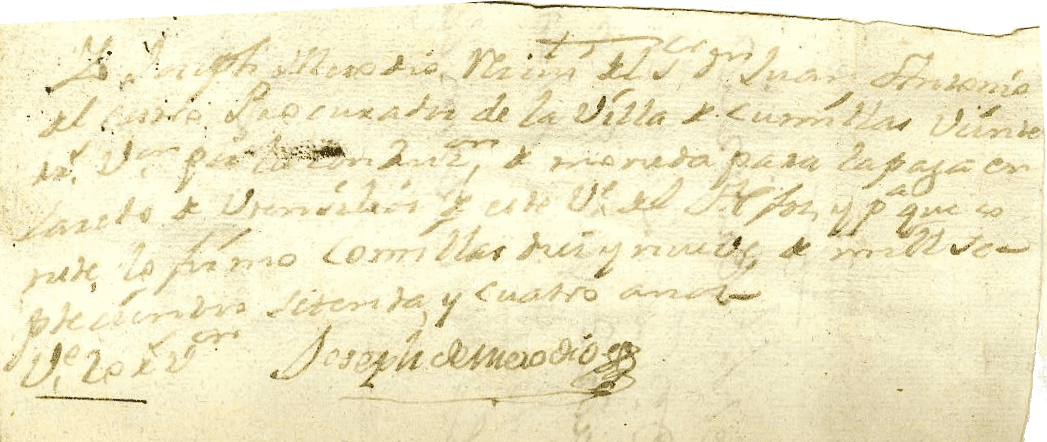 Yo Joseph Merodio, Rcivi del Sr. dn Juan Antonio
del Procurador de la Villa de Cumillas Veinte
rs. Von de moneda para la paga en
Laredo de Utensilios de este Vo. del y pa que co
nste, lo firmo Comillas diez y nueve, de mill Se-
ptecientos setenta, y cuatro anos
Ve. 20 rs Von Joseph de Merodio